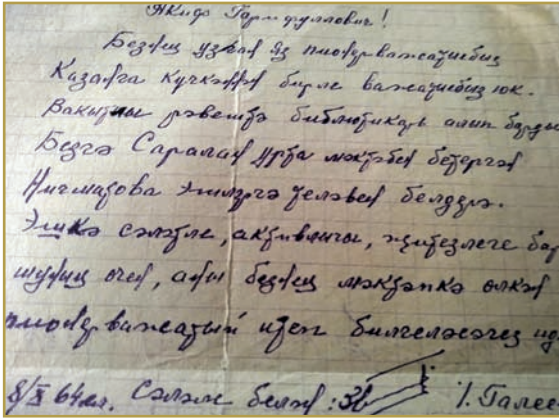 Акиф Гарифуллович!
Безнең узган яз пионервожатыебыз
Казанга күчкәннән бирле важатыебыз юк.
Вакытлы рәвештә библиотикарь алып барды
Безгә Саралан урта мәктәбен бетергән
Нигматова эшләргә теләвен белдерә.
Эшкә сәләтле, активлыгы, җитезлеге бар
шуның өчен, аны безнең мәктәпкә өлкән
пионерважатый итеп билгеләсәгез иде
8/X 64 ел. Сәлам белән: З. Галеев